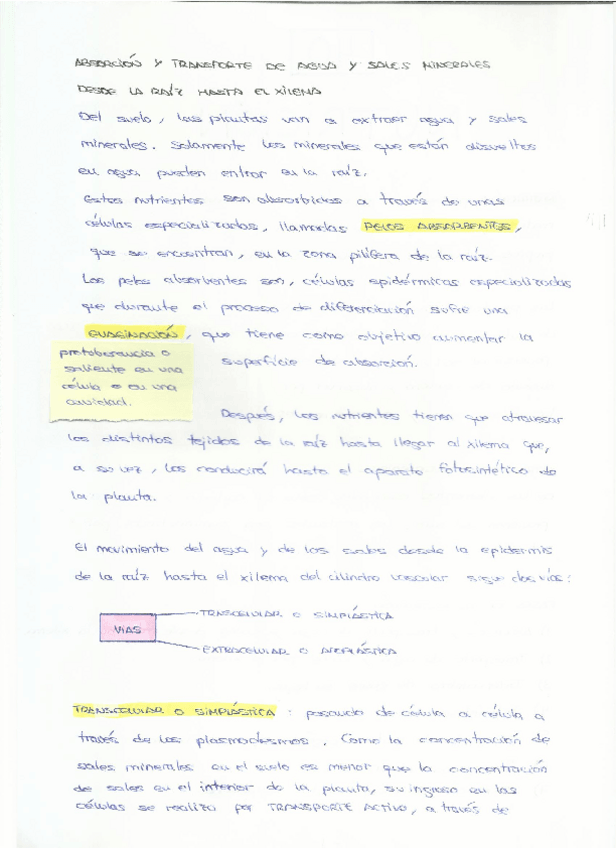 ABSORCIÓN Y TRANSPORTE DE AGUA Y SALES MINERALES
DESDE LA RAÍZ HASTA EL XILEMA
Del suelo, las plantas van a extraer agua y sales
minerales. Solamente los minerales que están disueltos
en agua pueden entrar en la raíz.
Estos nutrientes son absorbidos a través de unas
células especializadas, llamadas PELOS ABSORBENTES,
que se encuentran, en la zona pilífera de la raíz.
Los pelos absorbentes son, células epidérmicas especializadas
que durante el proceso de diferenciación sufre una
EVAGINACIÓN, que tiene como objetivo aumentar la
superficie de absorción.
protoberancia o
saliente en una
célula o en una
cavidad.
Después, los nutrientes tienen que atravesar
los distintos tejidos de la raíz hasta llegar al xilema que,
a su vez, los conducirá hasta el aparato fotosintético de
la planta.
El movimiento del agua y de las sales desde la epidermis
de la raíz hasta el xilema del cilindro vascular sigue dos vías:
VIAS
TRANSCELULAR O SIMPLÁSTICA
EXTRACELULAR O APOPLÁSTICA
TRANSCELULAR O SIMPLÁSTICA : pasando de célula a célula a
través de los plasmodesmos. Como la concentración de
sales minerales en el suelo es menor que la concentración
de sales en el interior de la planta, su ingreso en las
células se realiza por TRANSPORTE ACTIVO, a través de